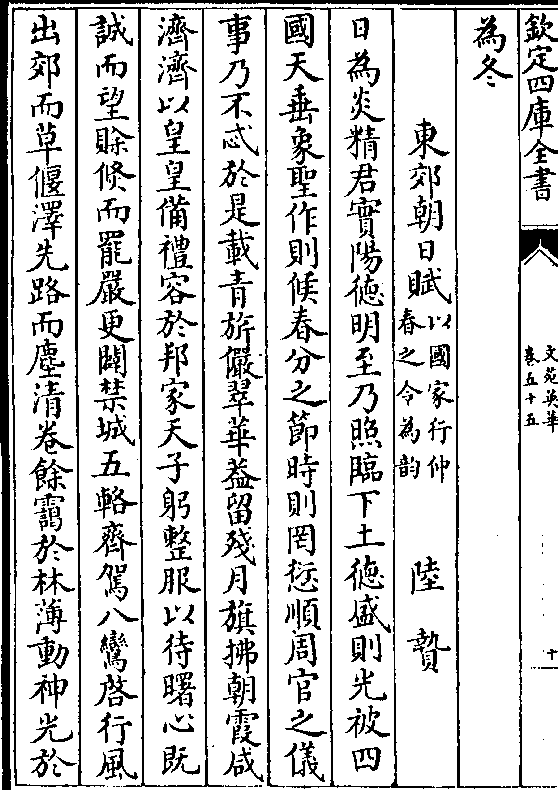 欽定四庫全書
文苑英華
卷五十五
十
為冬
東郊朝日賦
以國家行仲
春之令為韵
陸贄
日為炎精君實陽德明至乃照臨下土德盛則光被四
國天垂象聖作則候春分之節時則罔愆順周官之儀
事乃不忒於是載青旂儼翠華葢留殘月旗拂朝霞咸
濟濟以皇皇備禮容於邦家天子躬整服以待曙心既
誠而望賒倐而罷嚴更闢禁城五輅齊駕八鸞啓行風
出郊而草偃澤先路而塵清卷餘靄於林薄動神光於